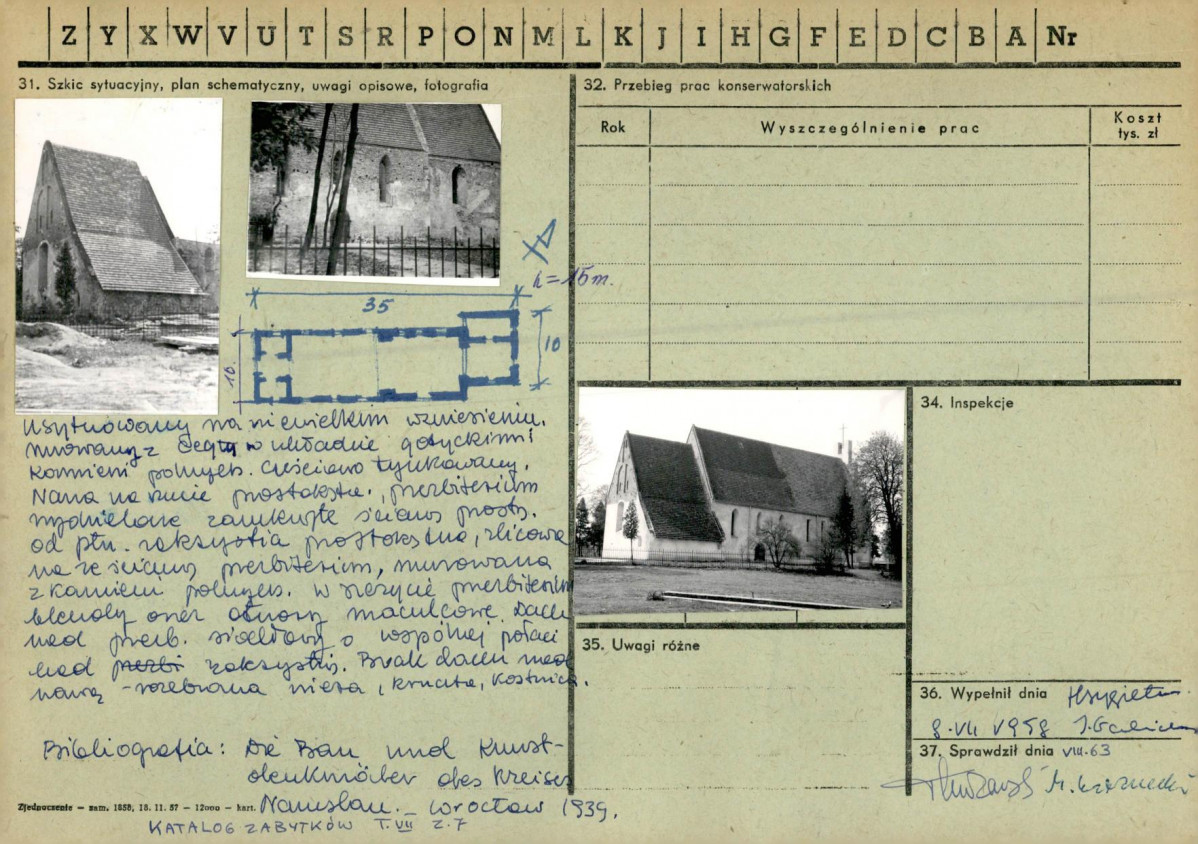 Z Y X W V U T S R P O N M L K J I H G F E D C B A Nr
31. Szkic sytuacyjny, plan schematyczny, uwagi opisowe, fotografia
h=15m.
35
10
10
Usytuowany na niewielkim wzniesieniu.
murowany z cegły w układzie gotyckim i
kamieni polnych. Częściowo tynkowany.
Nawa na rzucie prostokąta, prezbiterium
wydzielone zamknięte ścianą prostą.
od płn. zakrystia prostokątna, zlicowana
na ze ścianą prezbiterium, murowana
z kamieni polnych. W szczycie prezbiterium
blendy oraz otwory maculcowe. Dach
nad prezb. siodłowy o wspólnej połaci
nad prezbi zakrystią. Brak dachu nad
nawą - rozebrana wieża, kruchta, kostnica.
Bibliografia: Die Bau und Kunst-
denkmäler des Kreises
Namslau. - Wrocław 1939.
KATALOG ZABYTKÓW T. VII Z. 7
Zjednoczenie — zam. 1858, 18. 11. 57 — 12000 — kart.
32. Przebieg prac konserwatorskich
Rok
Wyszczególnienie prac
Koszt
tys. zł
34. Inspekcje
35. Uwagi różne
36. Wypełnił dnia
8.VII 1958
37. Sprawdził dnia VIII.63